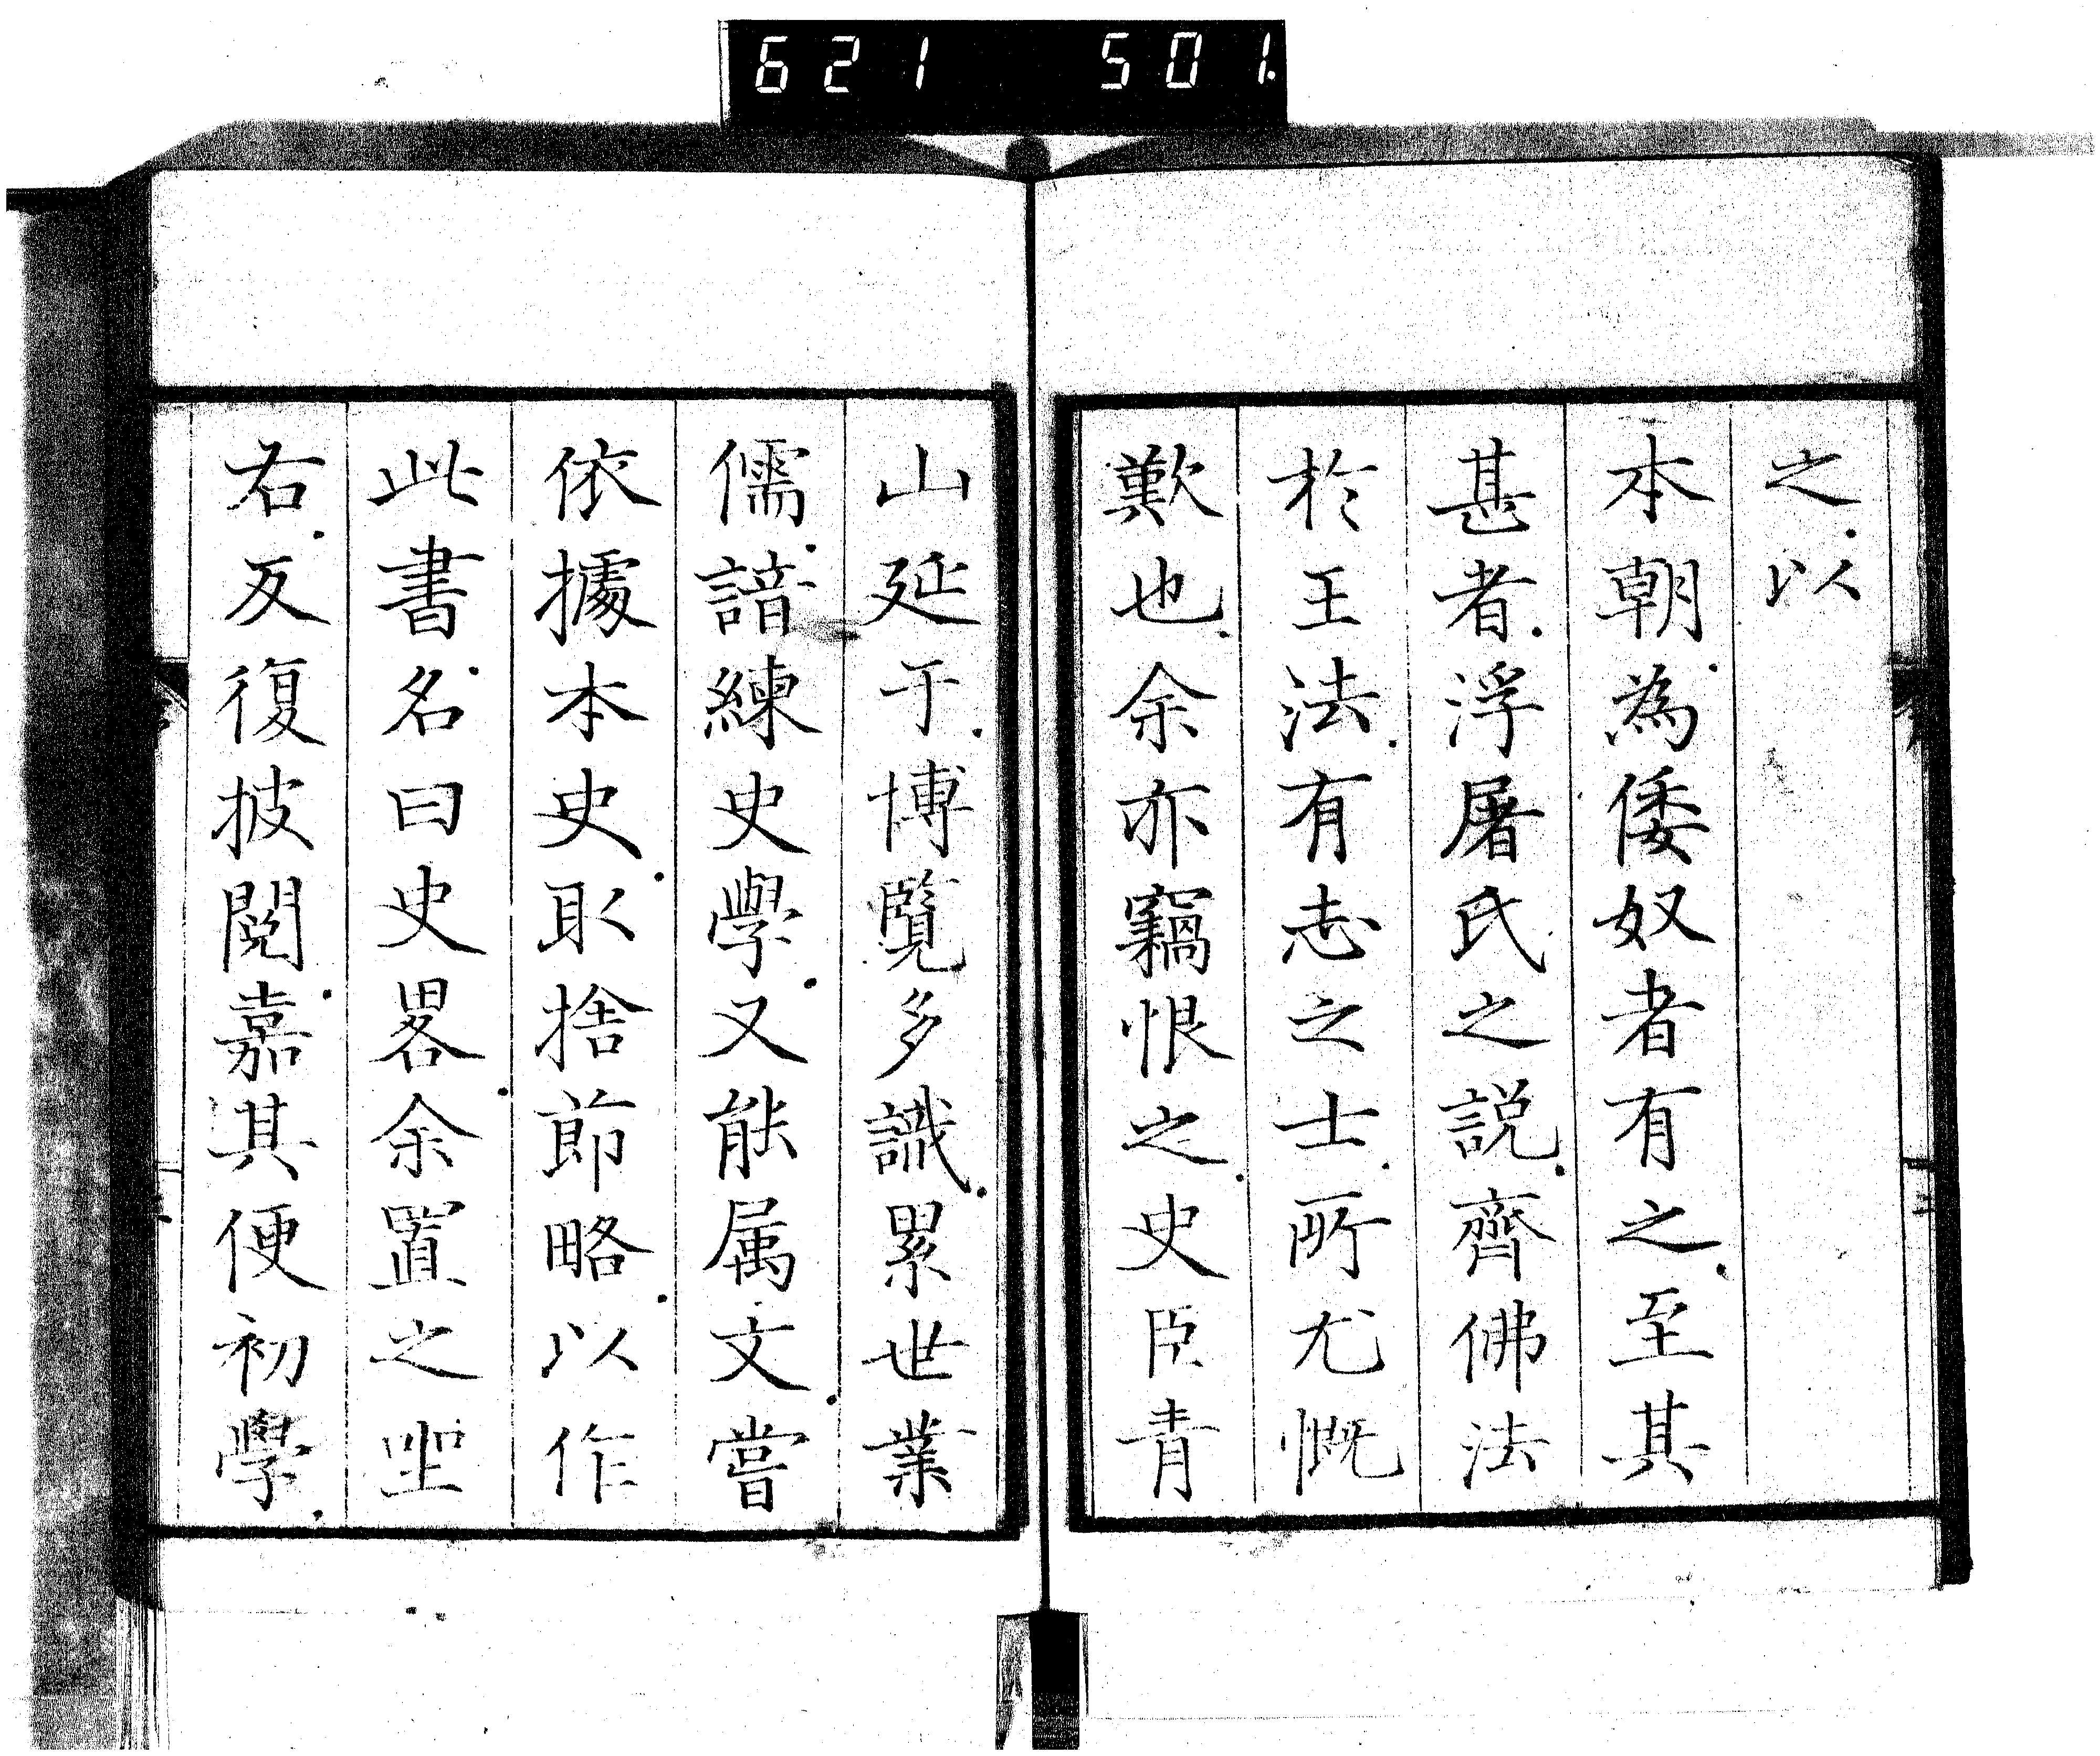 621 501.
之以
本朝為倭奴者有之至其
甚者浮屠氏之説齊佛法
於王法有志之士所尤慨
歎也余亦竊恨之史臣青
山延于博覧多識累世業
儒諳練史學又能属文嘗
依據本史取捨節略以作
此書名曰史畧余置之坐
右反復披閲嘉其便初學